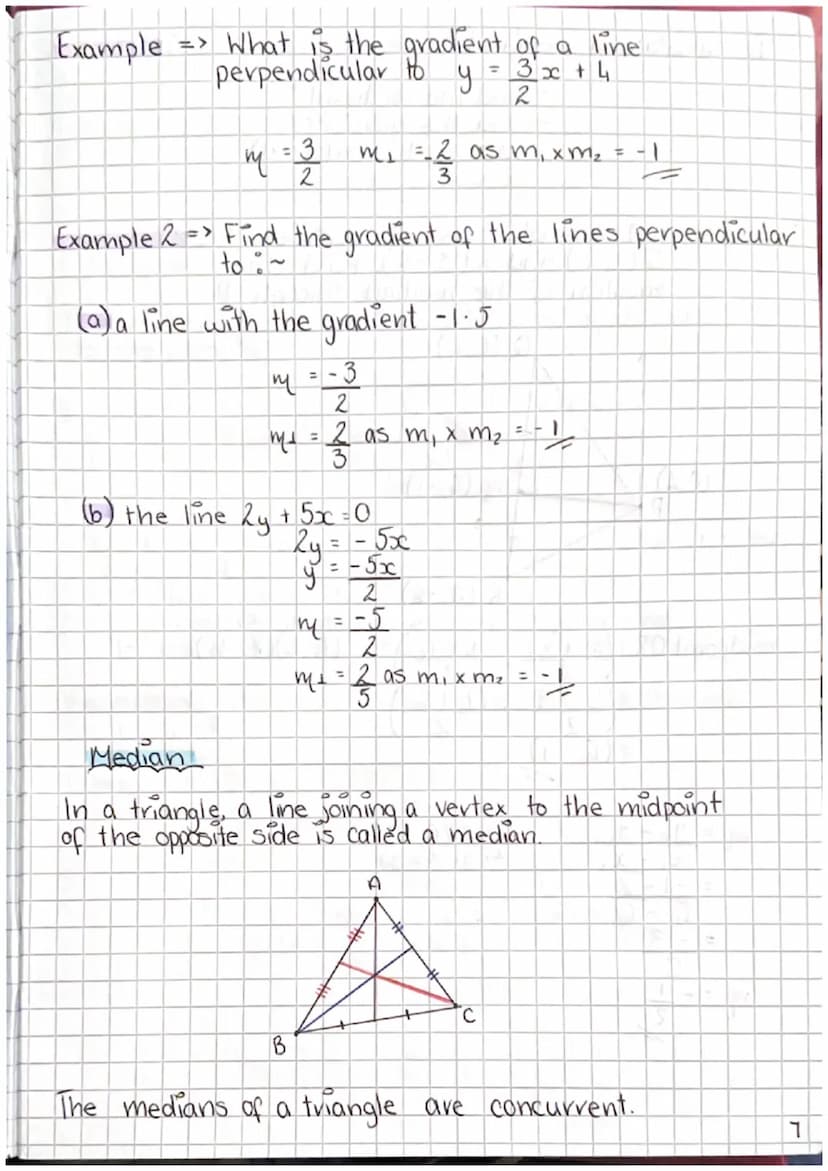 Example => What is the gradient of a line
perpendicular to y = 3/2 x + 4
m = 3/2 m⊥ = -2/3 as m₁ x m₂ = -1
Example 2 => Find the gradient of the lines perpendicular
to :~
(a) a line with the gradient -1.5
m = -3/2
m⊥ = 2/3 as m₁ x m₂ = -1
(b) the line 2y + 5x = 0
2y = - 5x
y = -5x/2
m = -5/2
m⊥ = 2/5 as m₁ x m₂ = -1
Median
In a triangle, a line joining a vertex to the midpoint
of the opposite side is called a median.
A
C
B
The medians of a triangle are concurrent.
7